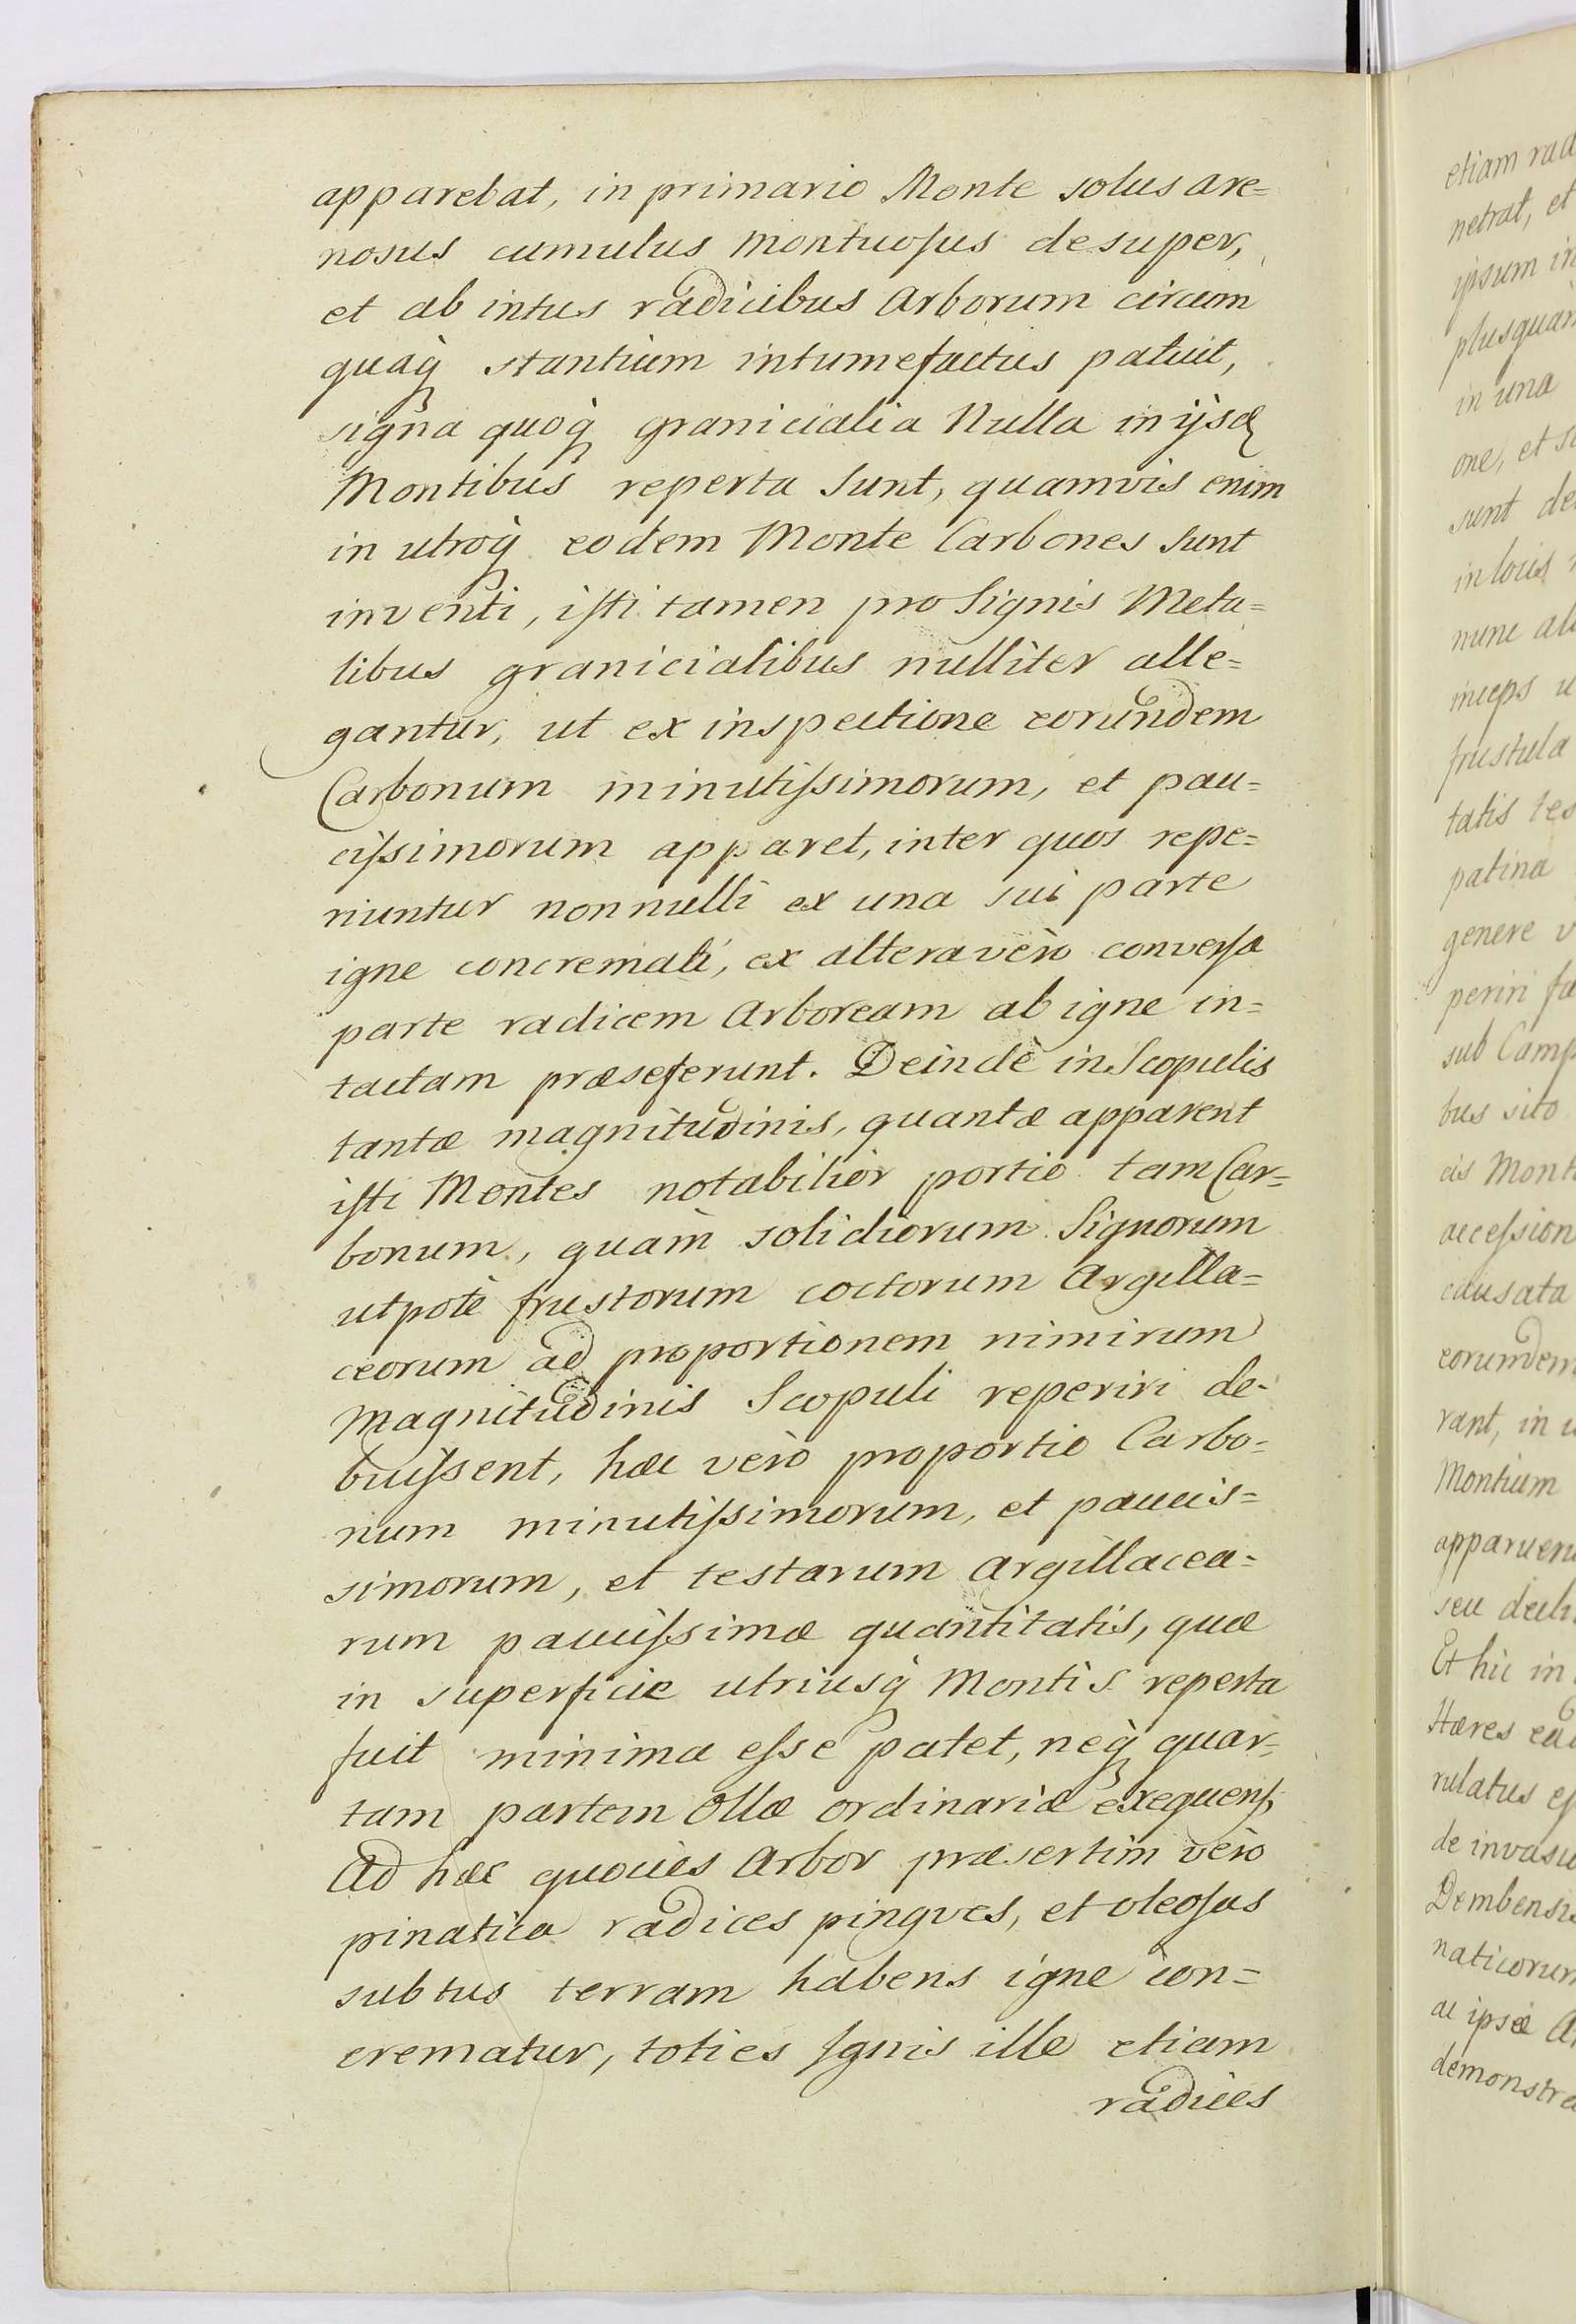 apparebat, in primario Monte solus are=
nosus cumulus montuosus desuper,
et ab intus radicibus Arborum circum
quaq̃ stantium intumefactus patuit,
signa quoq̃ granicialia Nulla in ijsd
Montibus reperta sunt, quamvis enim
in utroq̃ eodem Monte Carbones sunt
inventi, isti tamen pro Signis Meta=
libus granicialibus nulliter alle=
gantur, ut ex inspectione eorundem
Carbonum minutissimorum, et pau=
cissimorum apparet, inter quos repe=
riuntur nonnulli ex una sui parte
igne concremati, ex altera verò conversa
parte radicem Arboream ab igne in=
tactam præseferunt. Deindè in Scopulis
tantæ magnitudinis, quantæ apparent
isti Montes notabilior portio tam Car=
bonum, quàm solidiorum Signorum
utpotè frustorum coctorum Argilla=
ceorum ad proportionem nimirum
Magnitudinis Scopuli reperiri de=
buissent, hæc verò proportio Carbo=
num minutissimorum, et paucis=
simorum, et testarum argillacea=
rum paucissimæ quantitatis, quæ
in superficie utriusq̃ Montis reperta
fuit minima esse patet, neq̃ quar=
tam partem Ollæ ordinariæ exequens,
Ad hæc quoties Arbor præsertim verò
pinatica radices pingves, et oleosas
subtus terram habens igne con=
crematur, toties Ignis ille etiam
radices
etiam rad
netrat, et
ipsum in
plusquàm
in una
one, et s
sunt de
in locis
nunc al
inceps u
frustula
tatis tes
patina
genere v
periri fa
sub Camp
bus sito
cis Mont
accession
causata
eorumdem
rant, in u
Montium
apparuer
seu decli
Et hic in
Hæres ea
rulatus es
de invasu
Dembensis
naticorum
ac ipsæ A
demonstra